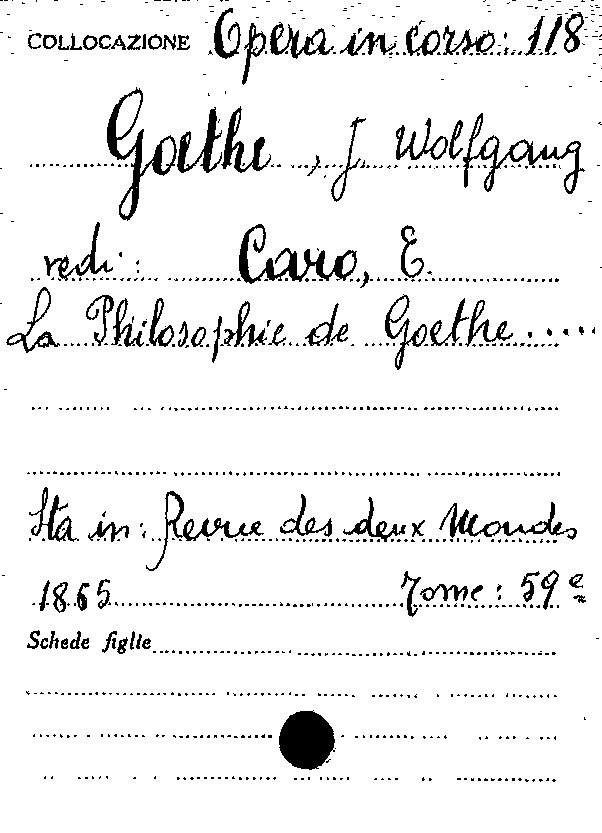 COLLOCAZIONE Opera in corso: 118
Goethe, J Wolfgang
vedi: Caro, E.
La Philosophie de Goethe.....
Sta in: Revue des deux Mondes
1865 Tome: 59e
Schede figlie